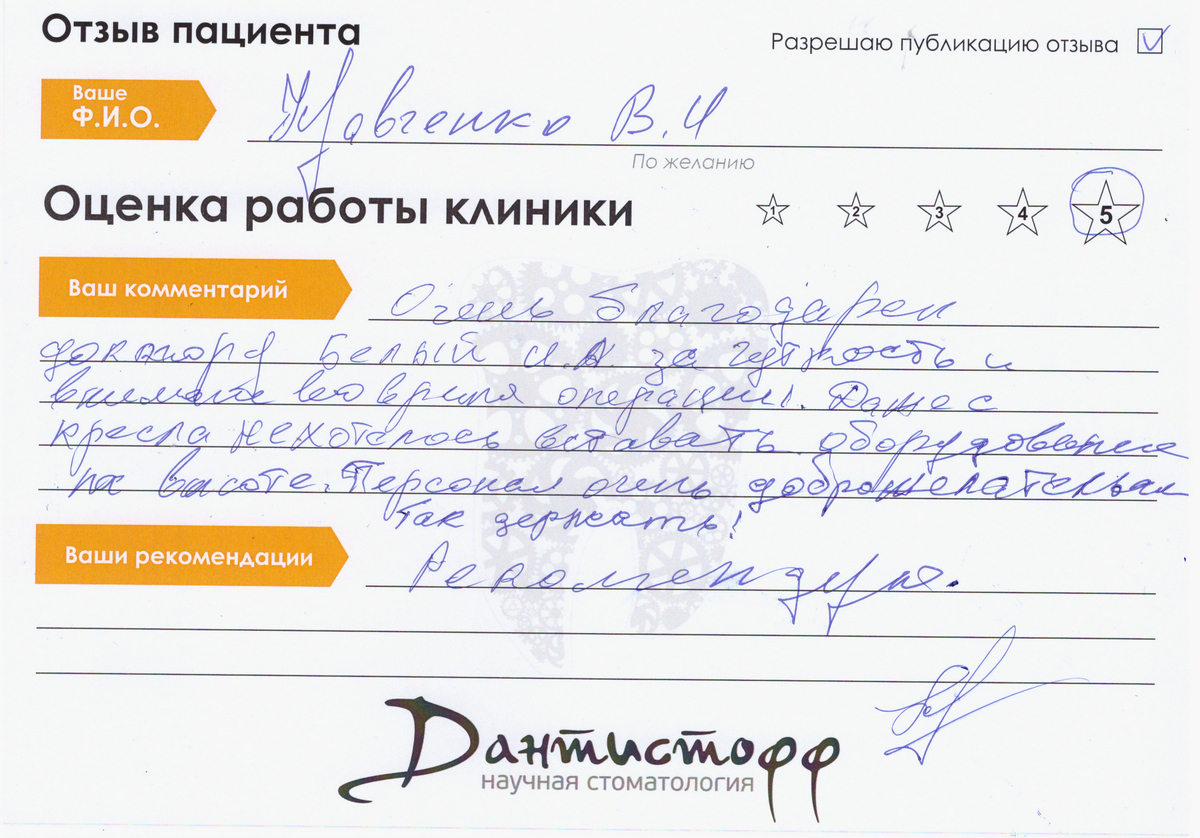 Отзыв пациента
Разрешаю публикацию отзыва
Ваше
Ф.И.О.
Кравченко В. И
По желанию
Оценка работы клиники
1 2 3 4 5
Ваш комментарий
Очень благодарен
доктору Белый И.А. за чуткость и
внимание во время операции. Даже с
кресла не хотелось вставать. оборудование
на высоте. Персонал очень доброжелательный
Так держать!
Ваши рекомендации
Рекомендую.
Дантистофф
научная стоматология